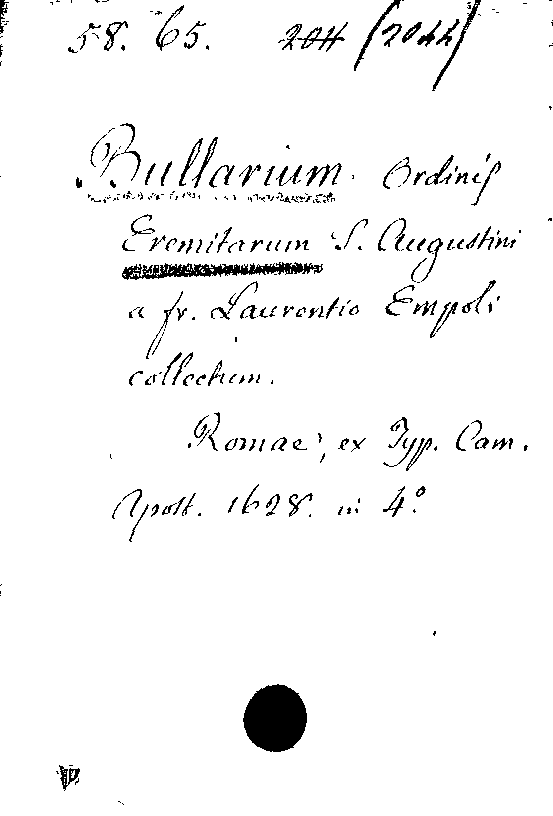 58. 65. 204 (2044)
Bullarium Ordinis
Eremitarum S. Augustini
a fr. Laurentio Empoli
collectum.
Romae, ex Typ. Cam.
Apost. 1628. in 4.°